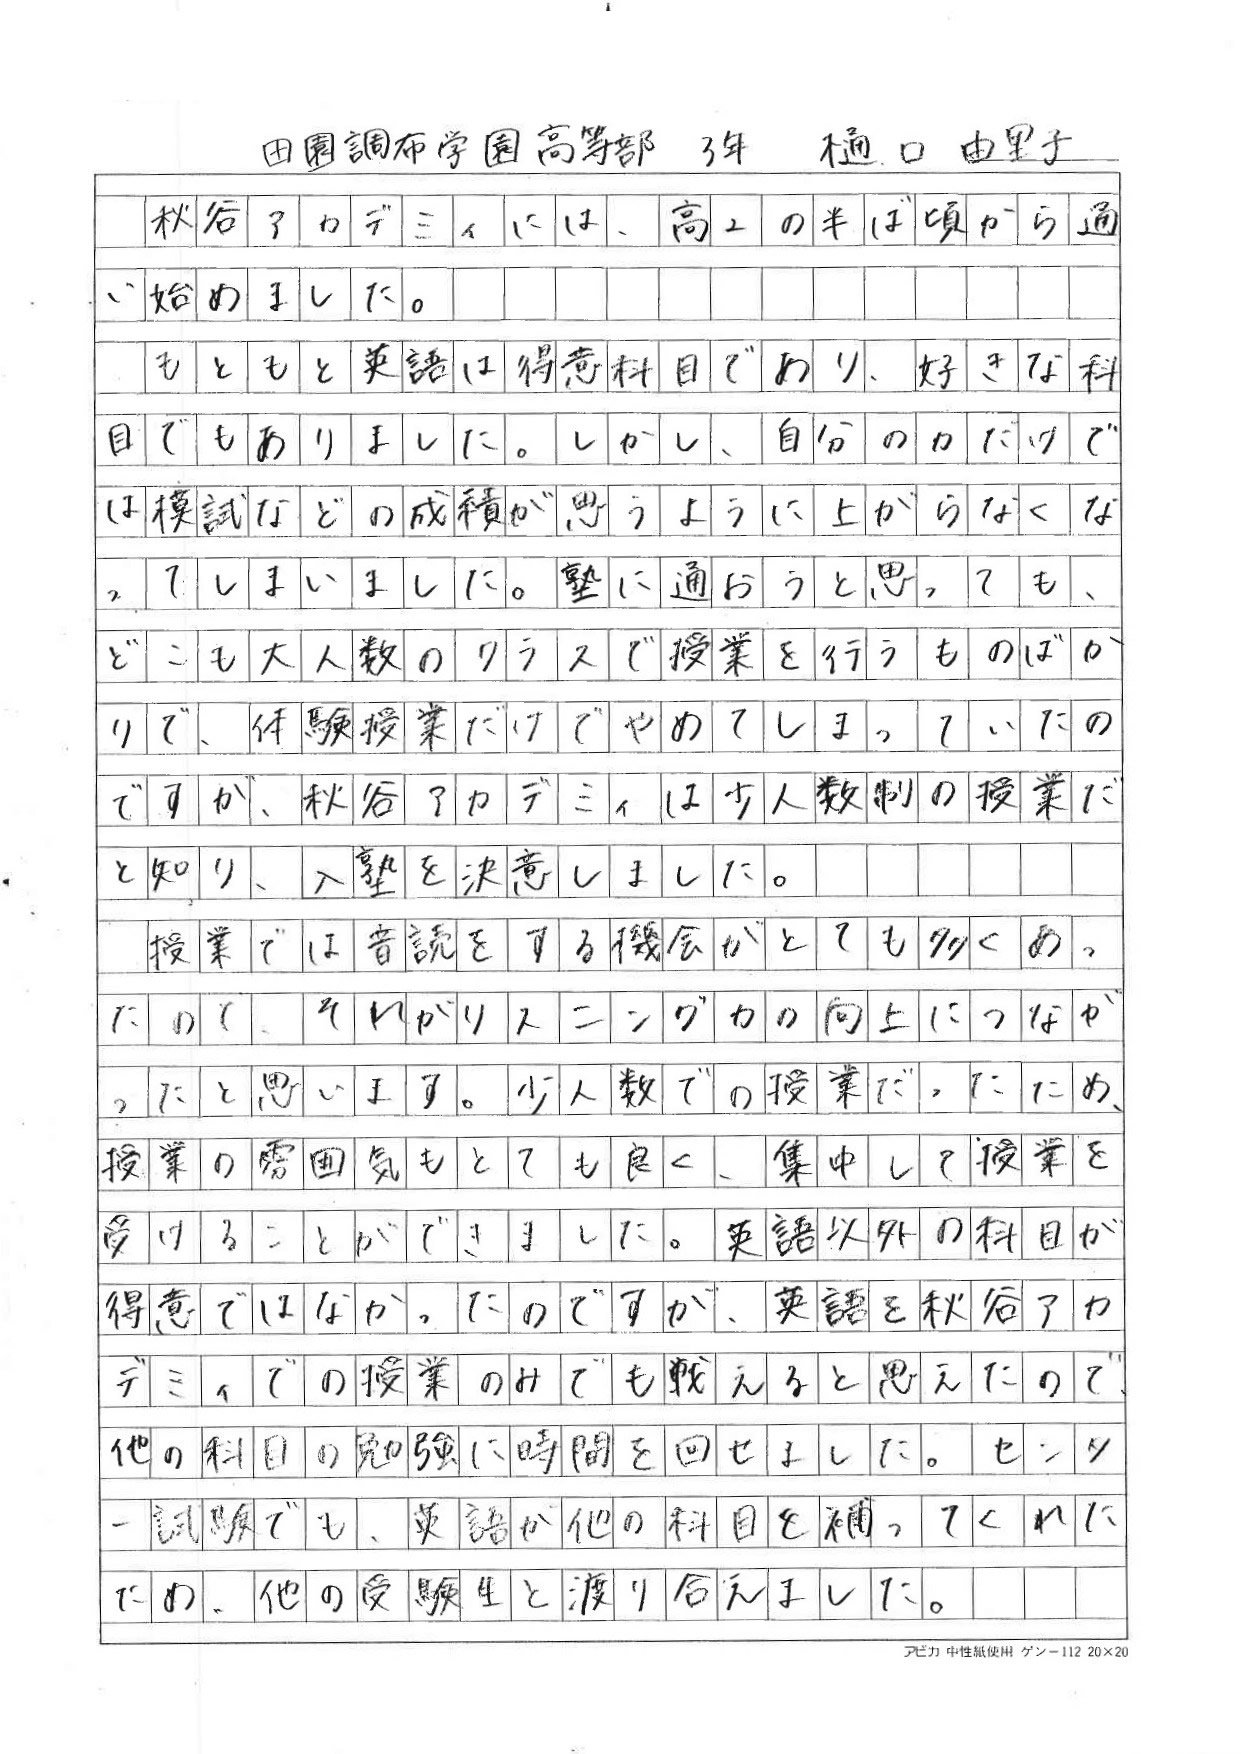 田園調布学園高等部 3年 樋口 由里子
秋谷アカデミィには、高2の半ば頃から通
い始めました。
もともと英語は得意科目であり、好きな科
目でもありました。しかし、自分の力だけで
は模試などの成績が思うように上がらなくな
ってしまいました。塾に通おうと思っても、
どこも大人数のクラスで授業を行うものばか
りで、体験授業だけでやめてしまっていたの
ですが、秋谷アカデミィは少人数制の授業だ
と知り、入塾を決意しました。
授業では音読をする機会がとても多くあっ
たので、それがリスニング力の向上につなが
ったと思います。少人数での授業だったため、
授業の雰囲気もとても良く、集中して授業を
受けることができました。英語以外の科目が
得意ではなかったのですが、英語を秋谷アカ
デミィでの授業のみでも戦えると思えたので、
他の科目の勉強に時間を回せました。センタ
ー試験でも、英語が他の科目を補ってくれた
ため、他の受験生と渡り合えました。
アピカ 中性紙使用 ゲンー112 20×20